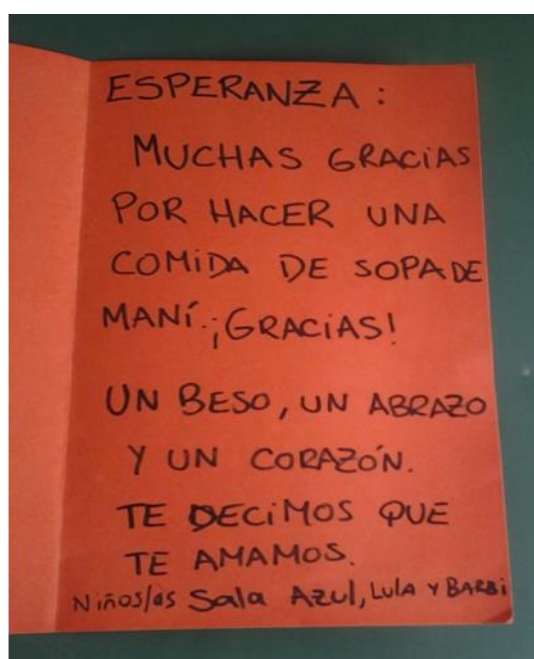 ESPERANZA:
MUCHAS GRACiAS
POR HACER UNA
COMiDA DE SOPA DE
MANÍ. ¡GRACiAS!
UN BESO, UN ABRAZO
Y UN CORAZÓN.
TE DECiMOS QUE
TE AMAMOS.
Niños/as Sala Azul, LULA Y BARBi